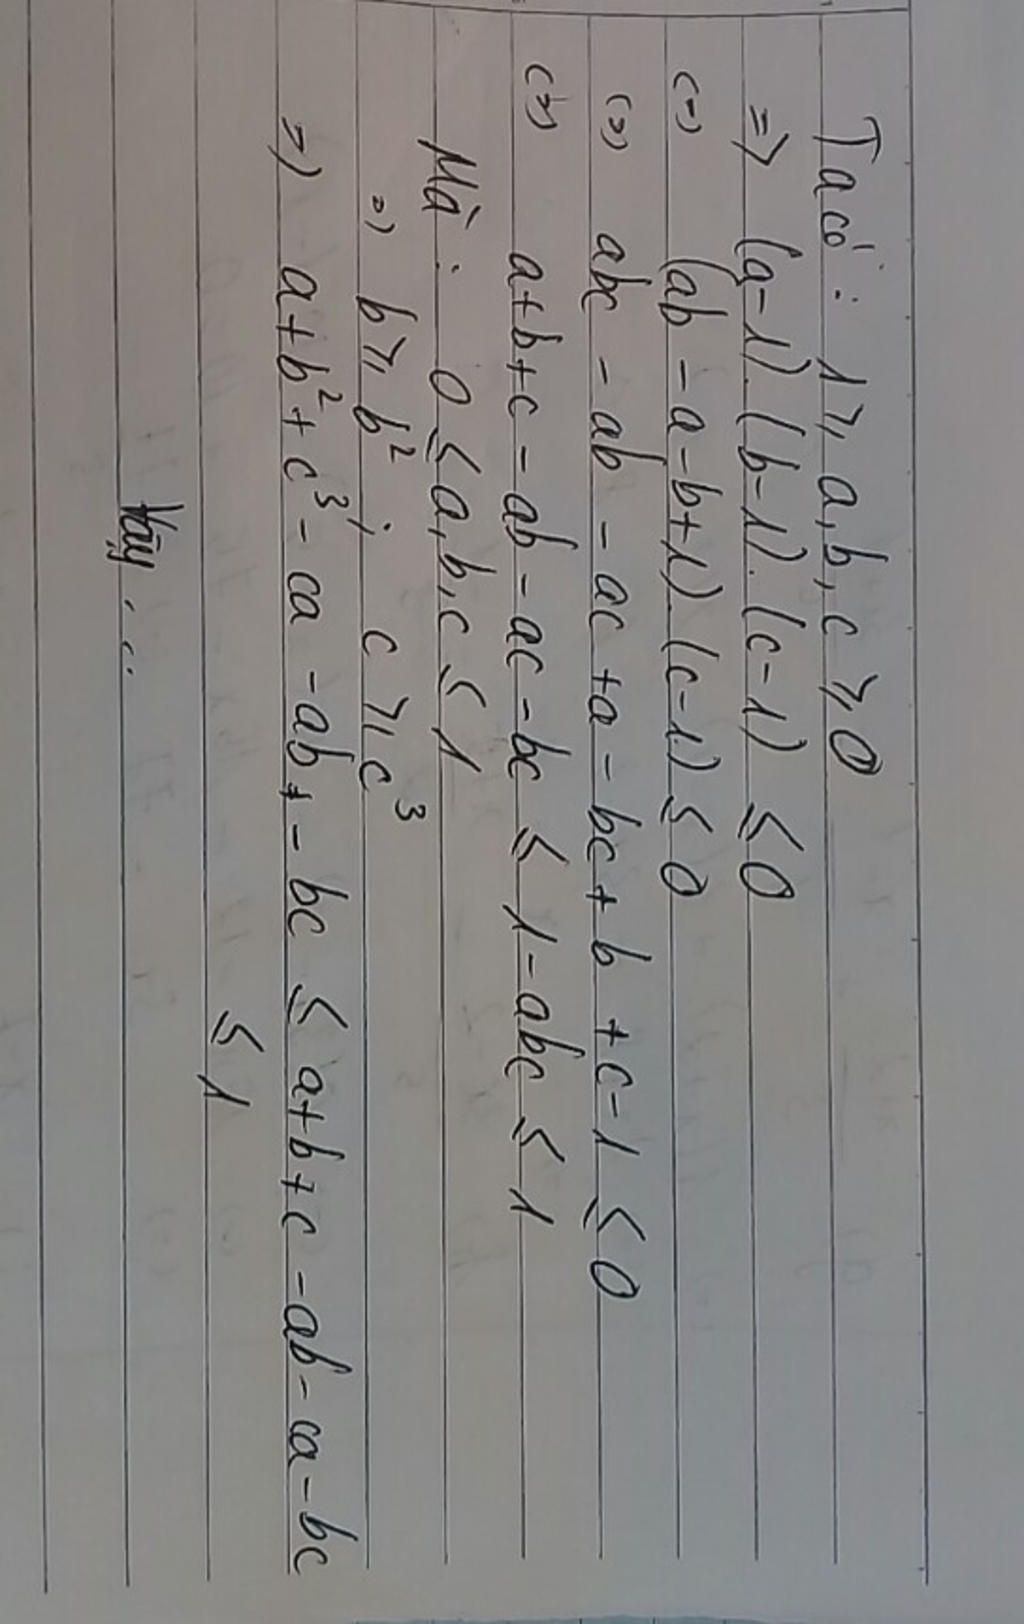 Ta có : 1 ⩾ a, b, c ⩾ 0
=> (a-1).(b-1).(c-1) ≤ 0
(=) (ab - a - b + 1).(c-1) ≤ 0
(=) abc - ab - ac + a - bc + b + c - 1 ≤ 0
(=) a + b + c - ab - ac - bc ≤ 1 - abc ≤ 1
Mà : 0 ≤ a, b, c ≤ 1
=) b ⩾ b² ; c ⩾ c³
=) a + b² + c³ - ca - ab - bc ≤ a + b + c - ab - ca - bc
≤ 1
Vậy ...